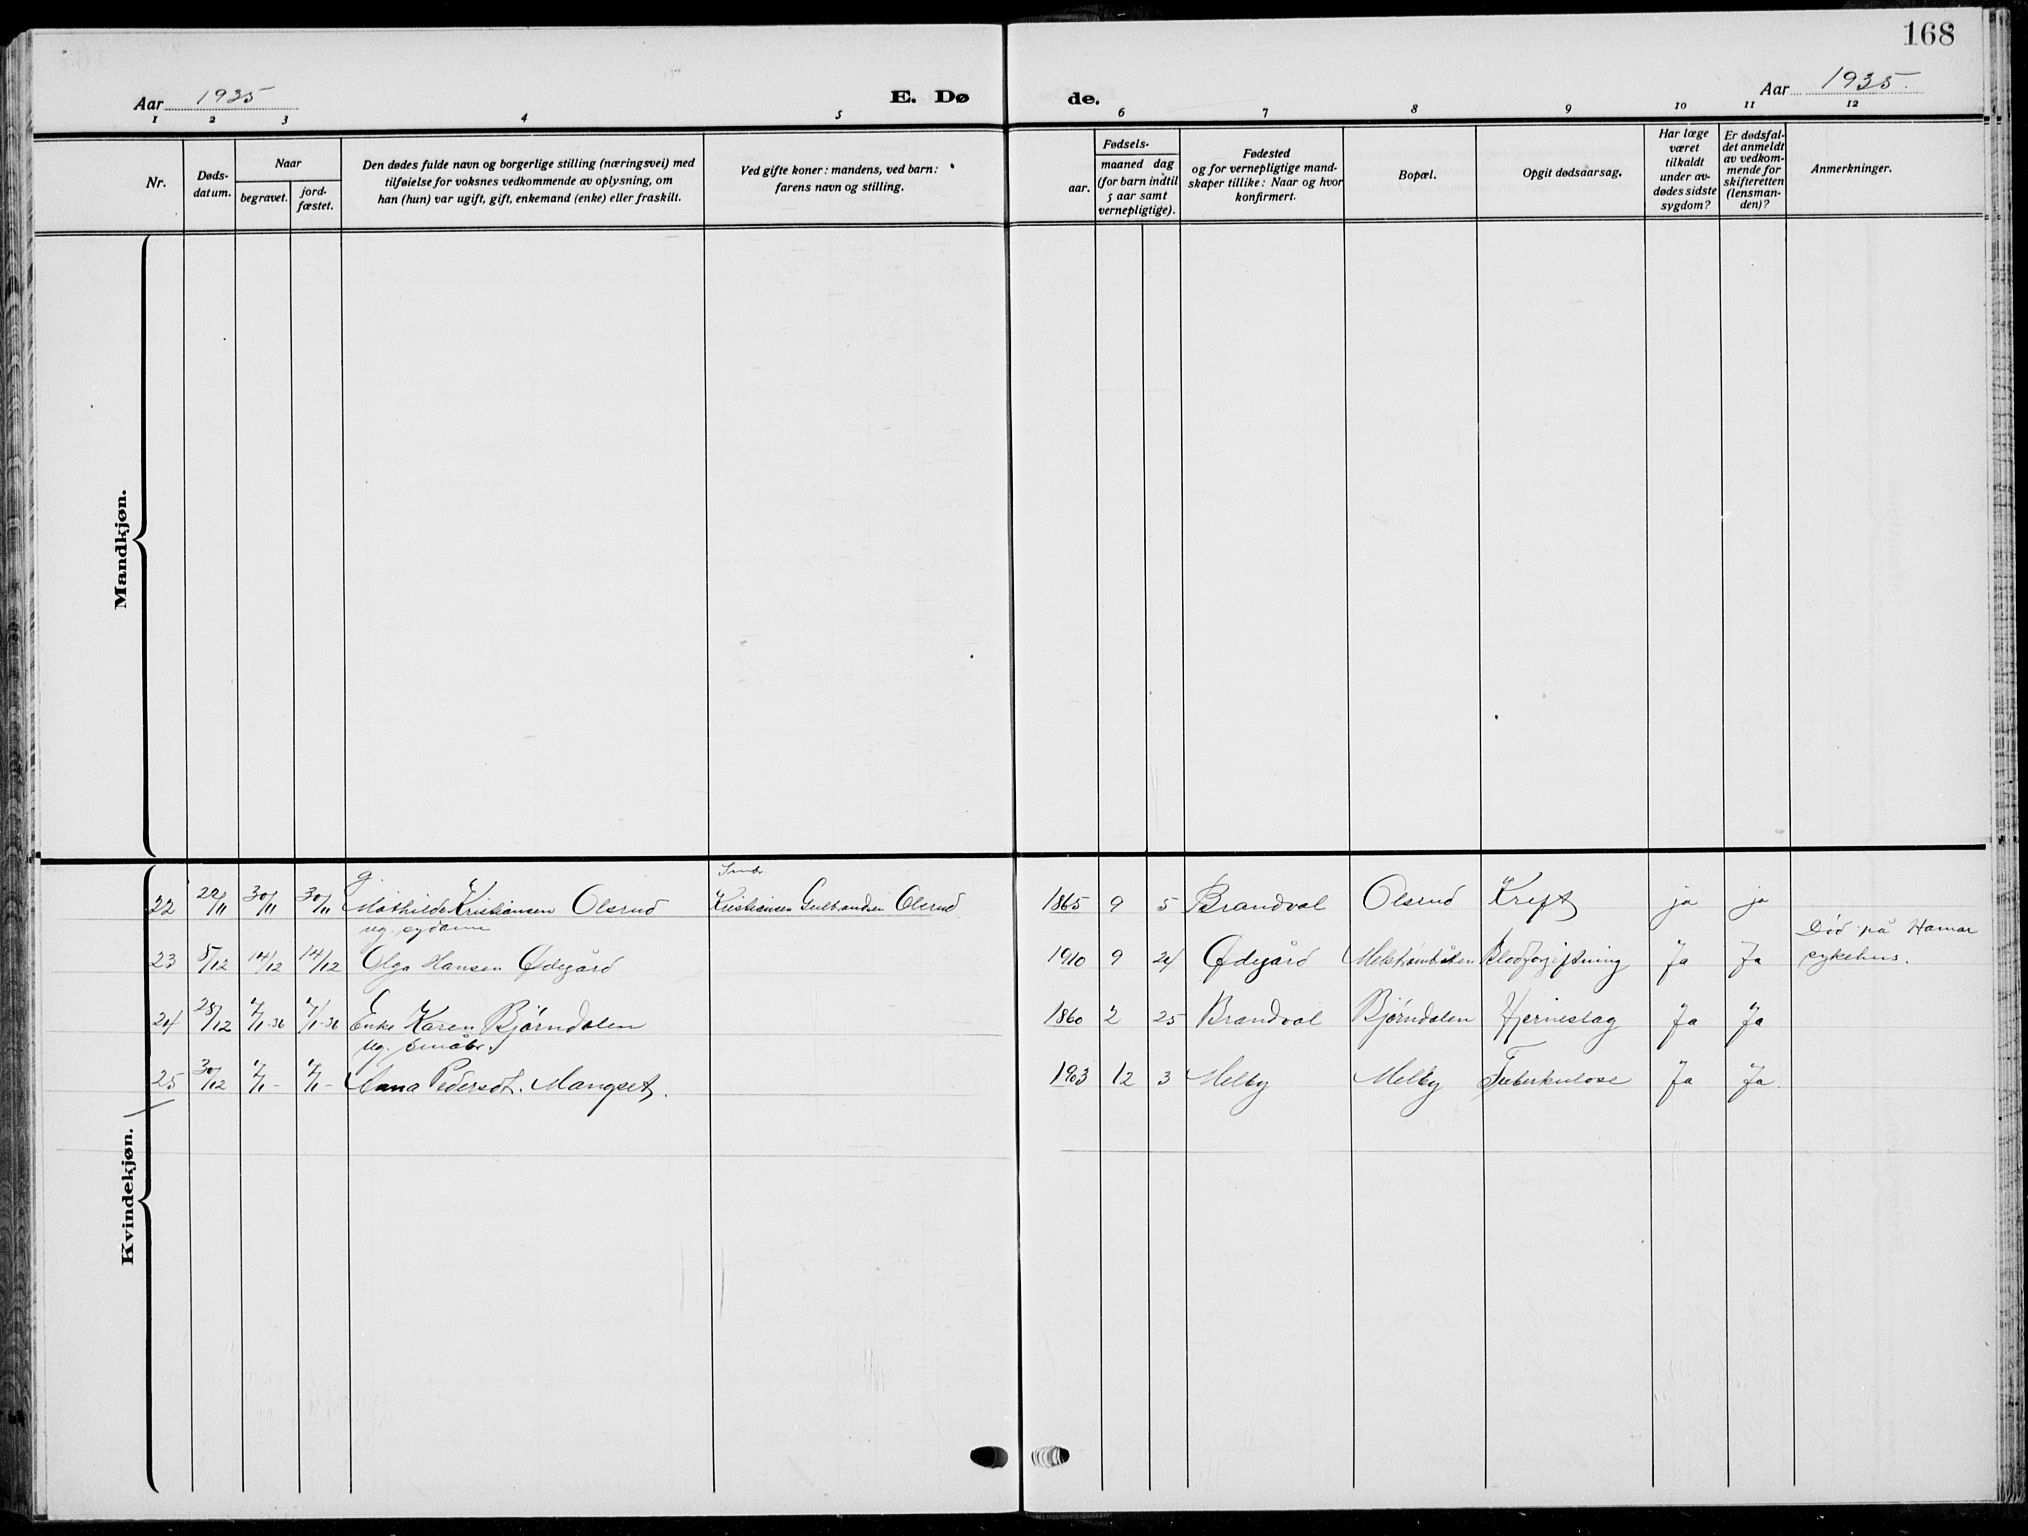 168
Aar 1935
E. Dø
de.
Aar 1935.
1 2 3 4 5 6 7 8 9 10 11 12
Nr.
Døds-
datum.
Naar
begravet.
jord-
fæstet.
Den dødes fulde navn og borgerlige stilling (næringsvei) med
tilføielse for voksnes vedkommende av oplysning, om
han (hun) var ugift, gift, enkemand (enke) eller fraskilt.
Ved gifte koner: mandens, ved barn:
farens navn og stilling.
Fødsels-
aar.
maaned dag
(for barn indtil
5 aar samt
vernepligtige).
Fødested
og for vernepligtige mand-
skaper tillike: Naar og hvor
konfirmert.
Bopæl.
Opgit dødsaarsag.
Har læge
været
tilkaldt
under av-
dødes sidste
sygdom?
Er dødsfal-
det anmeldt
av vedkom-
mende for
skifteretten
(lensman-
den)?
Anmerkninger.
Mandkjøn.
Kvindekjøn.
g. Småbr.
22 22/11 30/11 30/11 Mathilde Kristiansen Olsrud Kristiansen Gulbrandsen Olsrud 1865 9 5 Brandval Olsrud Kreft ja ja
ug. sydame Død på Hamar
23 5/12 14/12 14/12 Olga Hansen Ødegård 1910 9 24 Ødegård Blodforgiftning Ja Ja sykehus.
24 28/12 4/1-36 4/1-36 Enke Karen Bjørndalen 1860 2 25 Brandval Bjørndalen Hjerneslag Ja Ja
ug. småbr.
25 30/12 4/1- 4/1- Anna Pedersdt. Mangset. 1903 12 3 Melby Melby Tuberkulose Ja Ja.